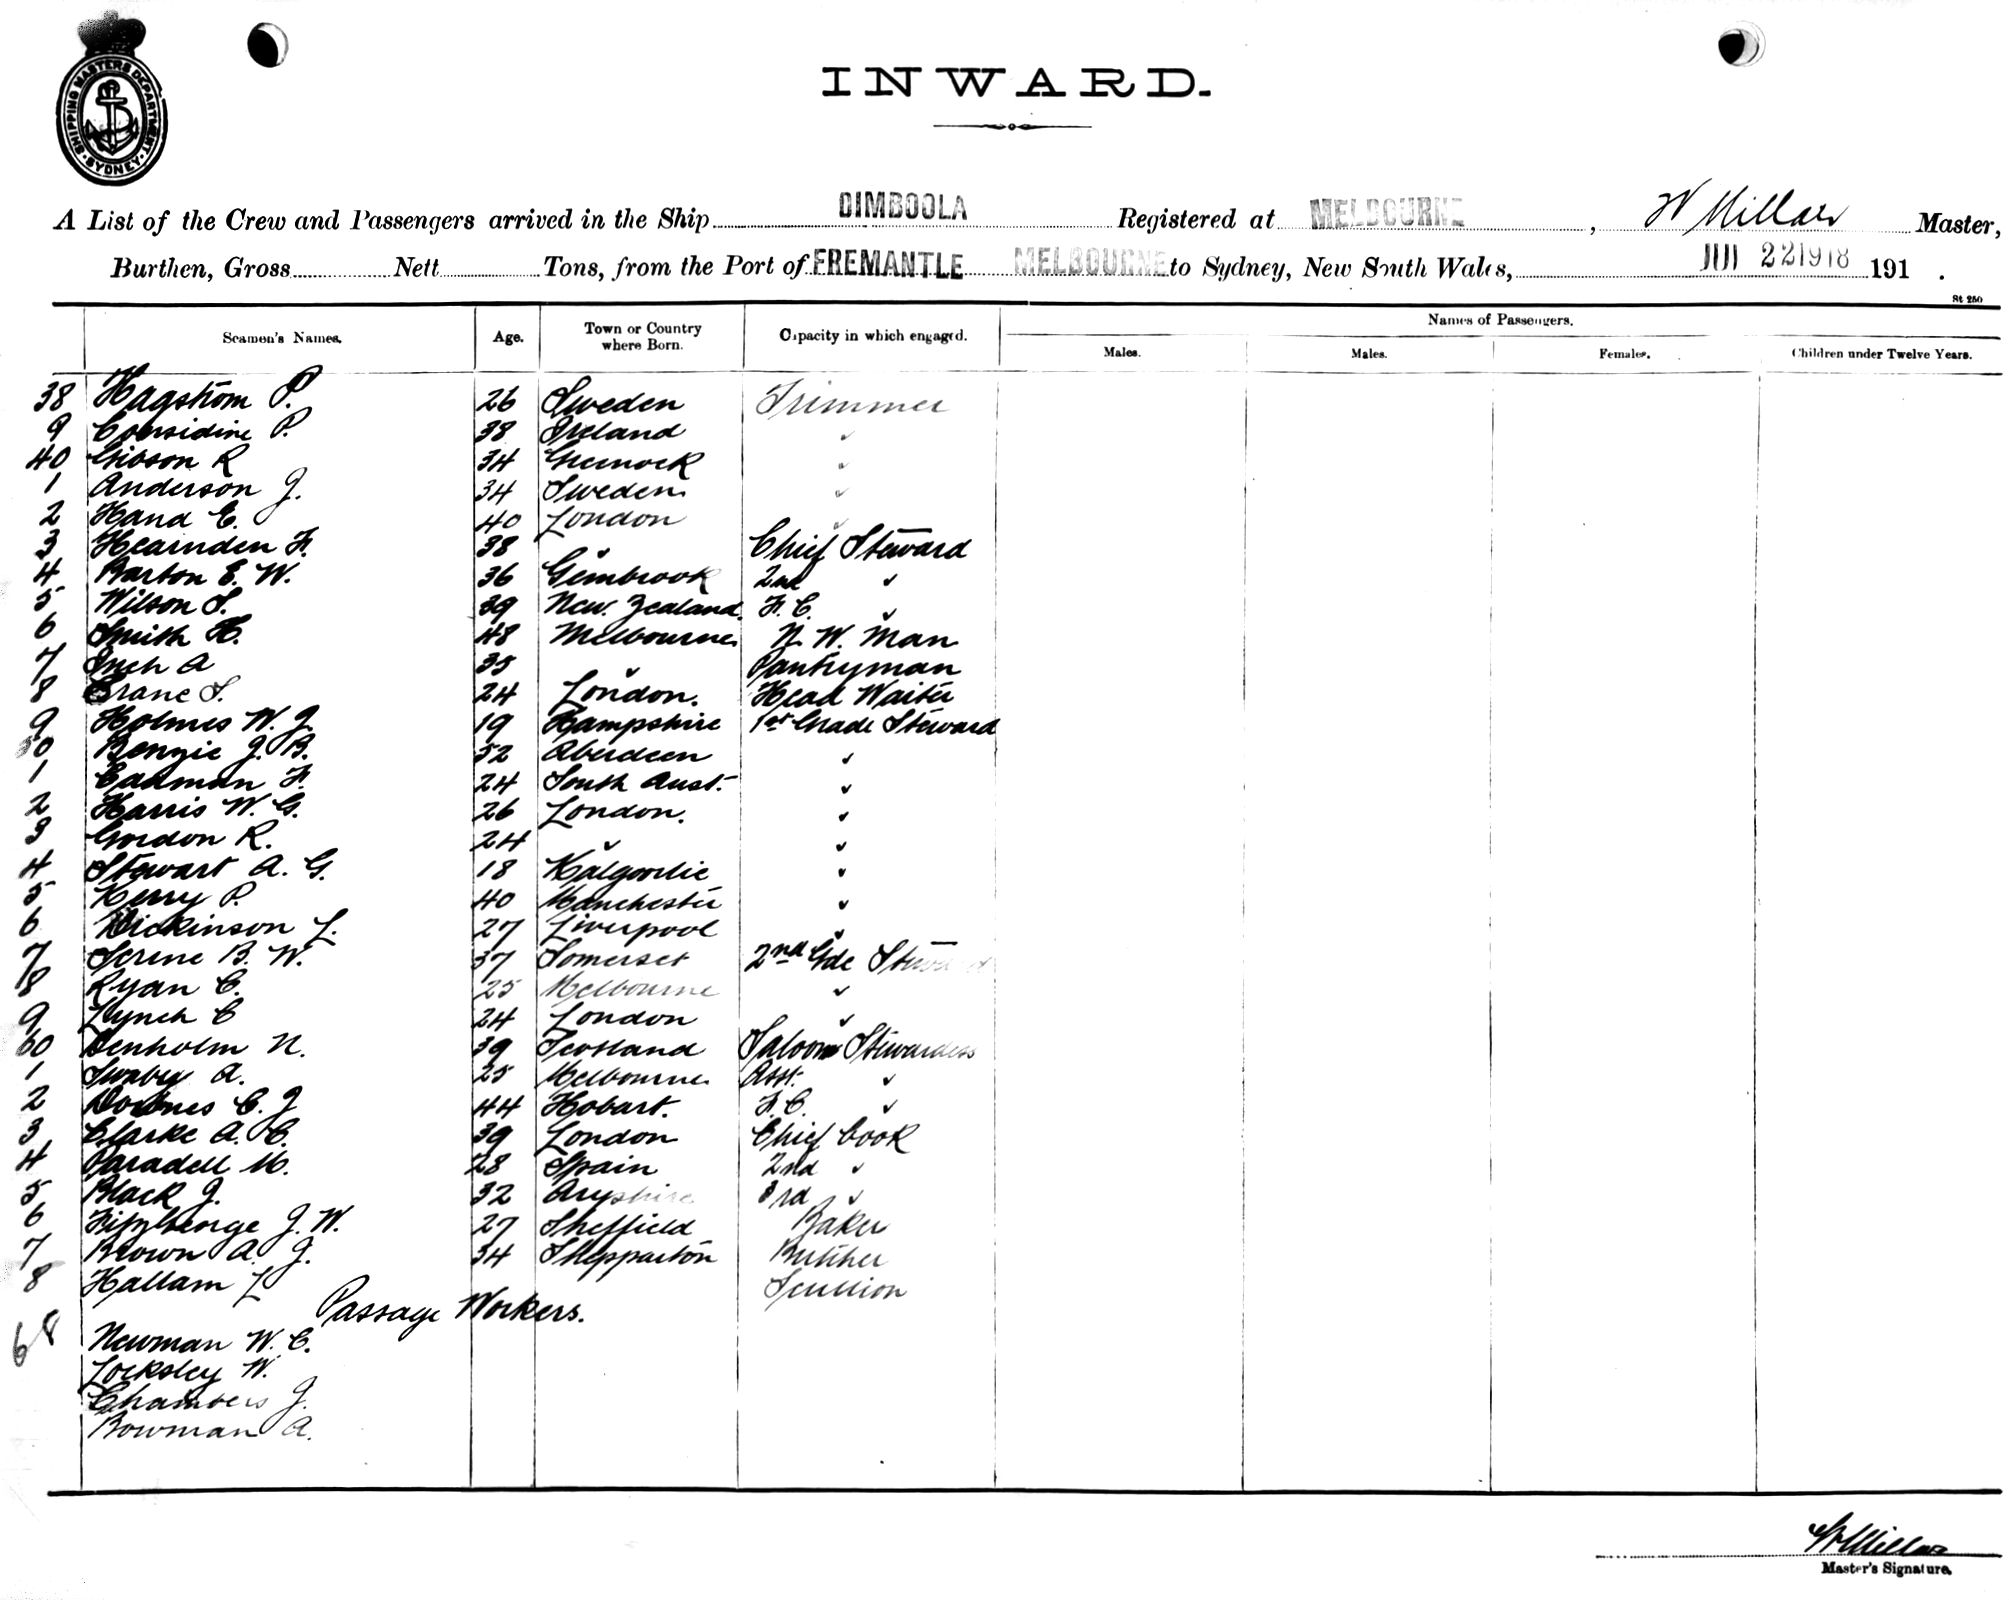 SHIPPING MASTERS DEPARTMENT · SYDNEY ·
INWARD.
A List of the Crew and Passengers arrived in the Ship DIMBOOLA Registered at MELBOURNE, W Millar Master,
Burthen, Gross Nett Tons, from the Port of FREMANTLE MELBOURNE to Sydney, New South Wales, 221918 191 .
St 250
Seamen's Names. Age. Town or Country where Born. Capacity in which engaged. Names of Passengers.
Males. Males. Females. Children under Twelve Years.
38 Hagstrom P. 26 Sweden Trimmer
9 Considine P. 38 Ireland "
40 Gibson R 34 Greenock "
1 Anderson J. 34 Sweden "
2 Hand E. 40 London "
3 Hearnden F. 38 " Chief Steward
4 Barton E. W. 36 Gembrook 2nd "
5 Wilson S. 39 New Zealand. F. C. "
6 Smith H. 48 Melbourne N. W. Man
7 Inch A 35 " Pantryman
8 Crane S. 24 London. Head Waiter
9 Holmes W. J. 19 Hampshire 1st Grade Steward
50 Benzie J. B. 52 Aberdeen "
1 Cadman F. 24 South Aust. "
2 Harris W. G. 26 London. "
3 Gordon R. 24 " "
4 Stewart A. G. 18 Kalgoorlie "
5 Kerry P. 40 Manchester "
6 Dickinson L. 27 Liverpool "
7 Scrine B. W. 37 Somerset 2nd Gde Steward
8 Ryan C. 25 Melbourne "
9 Lynch C 24 London "
60 Denholm N. 39 Scotland Saloon Stewardess
1 Swabey A. 25 Melbourne Asst. "
2 Downes C. J 44 Hobart. F. C. "
3 Clarke A. C. 39 London Chief Cook
4 Paradell M. 28 Spain 2nd "
5 Black J. 32 Aryshire 3rd "
6 FitzGeorge J. W. 27 Sheffield Baker
7 Brown A. J. 34 Shepparton Butcher
8 Hallam L Scullion
Passage Workers.
68 Newman W. C.
Locksley W.
Chambers J.
Bowman A.
W Millar
Master's Signature.